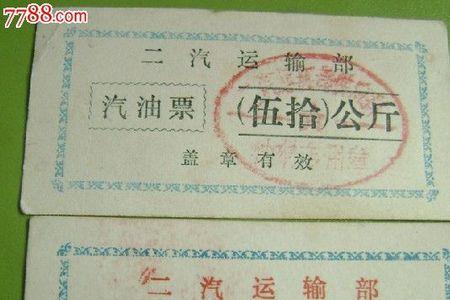 7788.com
二汽运输部
汽油票
(伍拾)公斤
盖章有效
二汽运输部